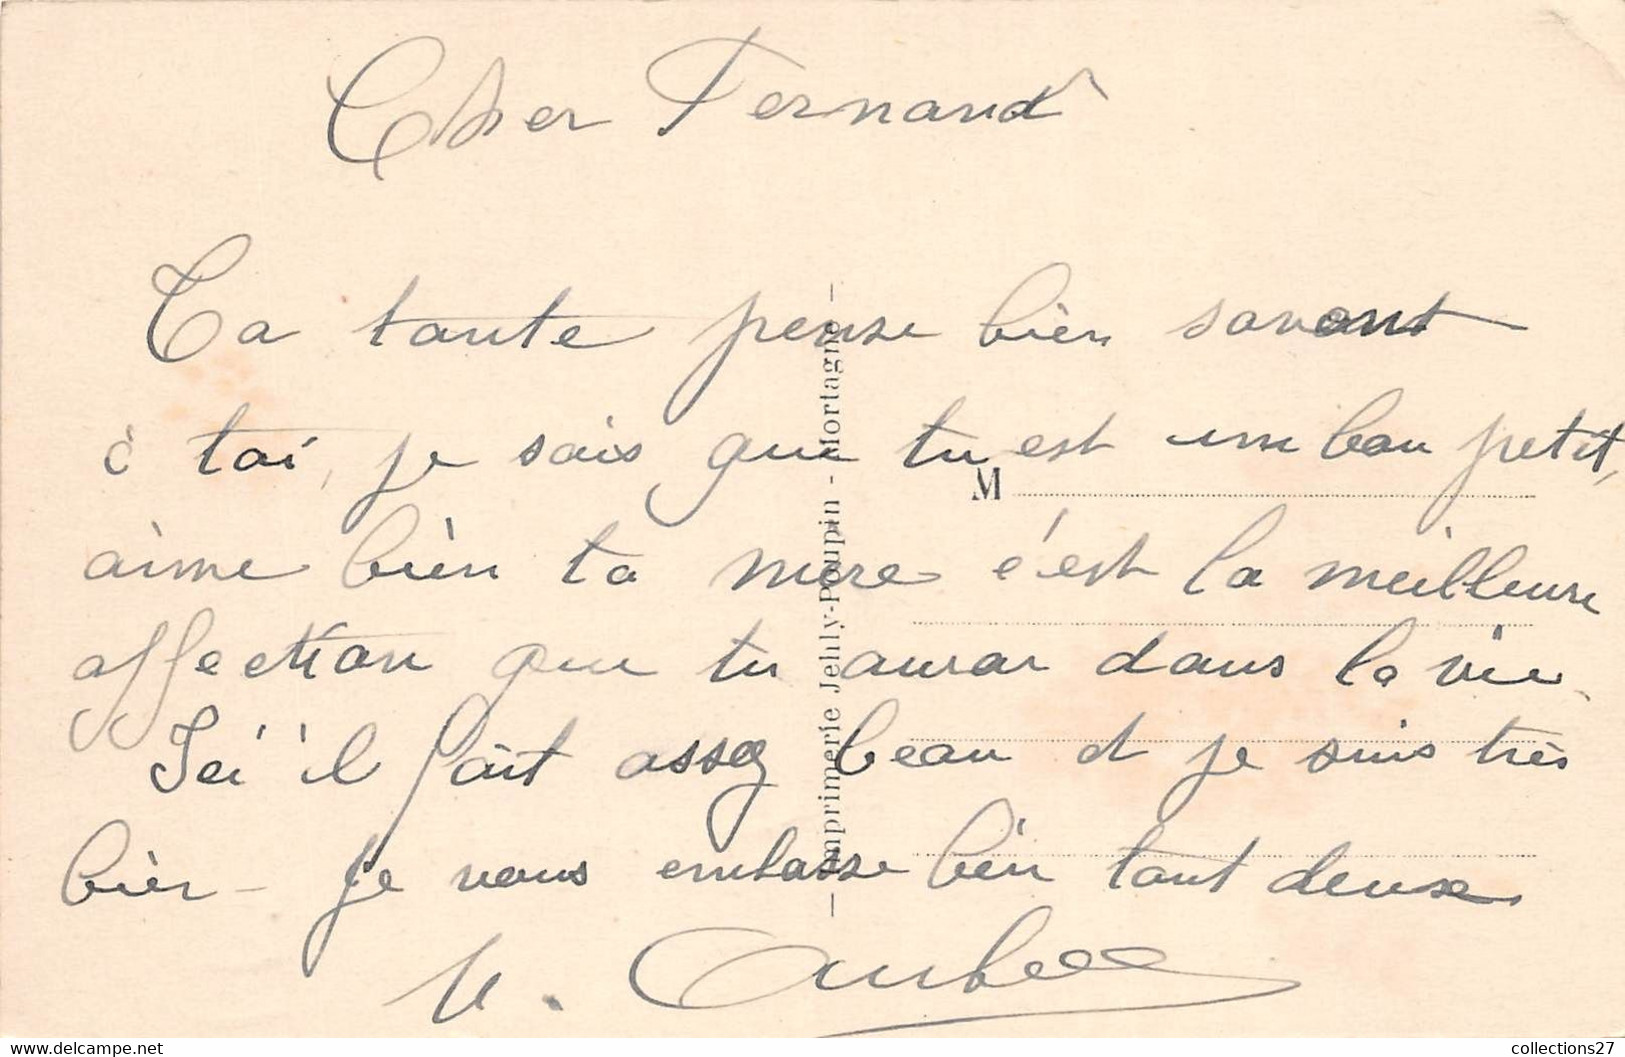 Cher Fernand
Ta tante pense bien souvent
à toi, je sais que tu est un bon petit,
aime bien ta mere c'est la meilleure
affection que tu aurar dans la vie.
Ici il fait assez beau et je suis très
bien - Je vous embasse bien tout deuse
M.
M
— Imprimerie Jehly-Poupin - Mortagne —
collections27